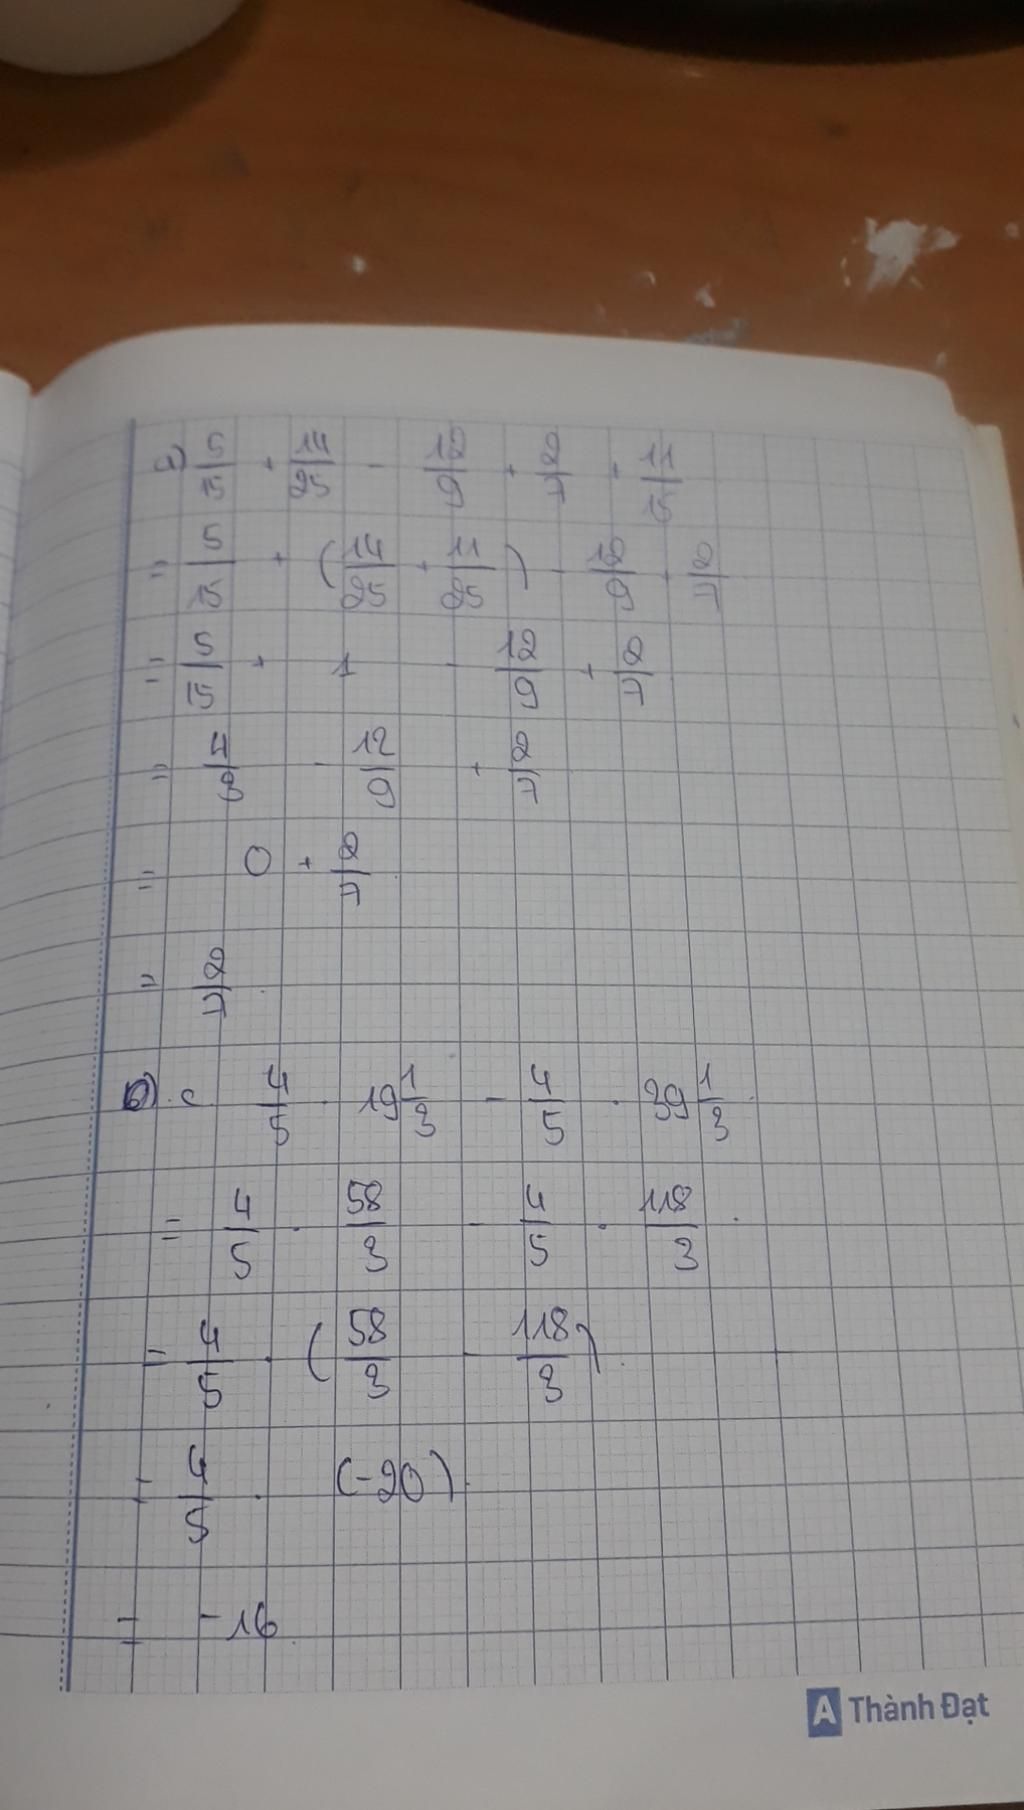 a) 5/15 + 14/25 - 12/9 + 2/7 + 11/15
= 5/15 + (14/25 + 11/25) - 12/9 + 2/7
= 5/15 + 1 - 12/9 + 2/7
= 4/3 - 12/9 + 2/7
= 0 + 2/7
= 2/7
c 4/5 . 19 1/3 - 4/5 . 39 1/3
= 4/5 . 58/3 - 4/5 . 118/3
= 4/5 . (58/3 - 118/3)
= 4/5 . (-20)
= -16
A Thành Đạt